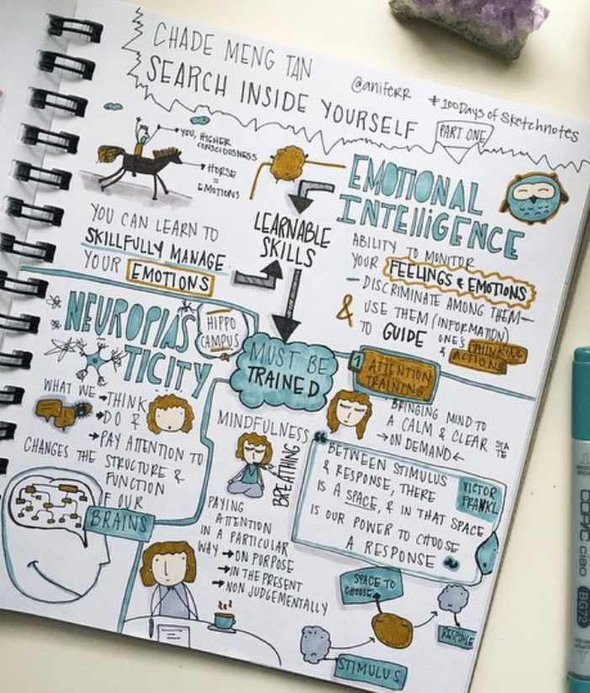 CHADE MENG TAN
SEARCH INSIDE
YOURSELF
PART ONE
@aniferr
#100DAYS of SketchNotes
YOU, HIGHER
CONSCIOUSNESS
HORSE =
EMOTIONS
YOU CAN LEARN TO
SKILLFULLY MANAGE
YOUR EMOTIONS
LEARNABLE
SKILLS
EMOTIONAL
INTELLIGENCE
ABILITY TO MONITOR
YOUR FEELINGS & EMOTIONS
DISCRIMINATE AMONG THEM
& USE THEM (INFORMATION)
TO GUIDE ONES THINKING
& ACTIONS
NEUROPLAS
TICITY
HIPPO
CAMPUS
WHAT WE → THINK
→ DO &
→ PAY ATTENTION TO
CHANGES THE STRUCTURE &
FUNCTION
OF OUR
BRAINS
MUST BE
TRAINED
1 ATTENTION
TRAINING
BRINGING MIND TO
A CALM & CLEAR STATE
→ ON DEMAND ←
MINDFULNESS
BREATHING
PAYING
ATTENTION
IN A PARTICULAR
WAY → ON PURPOSE
→ IN THE PRESENT
→ NON JUDGEMENTALLY
"BETWEEN STIMULUS
& RESPONSE, THERE
IS A SPACE, & IN THAT SPACE
IS OUR POWER TO CHOOSE
A RESPONSE"
VICTOR
FRANKL
SPACE TO
CHOOSE
RESPONSE
STIMULUS
COPIC
ciao
BG72